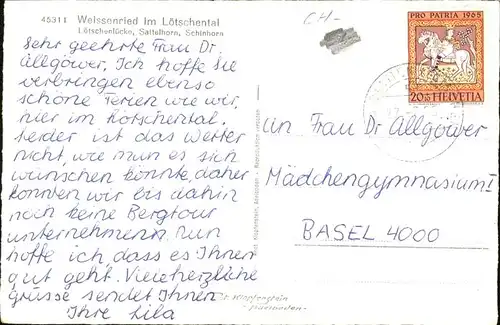 45311 Weissenried im Lötschental
Lötschenlücke, Sattelhorn, Schinhorn
CH-
PRO PATRIA 1965
20+10 HELVETIA
Sehr geehrte Frau Dr
Allgöwer, Ich hoffe sie
verbringen ebenso
schöne Ferien wie wir,
hier im Lötschental.
Leider ist das Wetter
nicht, wie man es sich
wünschen könnte, daher
konnten wir bis dahin
noch keine Bergtour
unternehmen. Nun
hoffe ich, dass es Ihnen
gut geht. Viele herzliche
Grüsse sendet Ihnen
Ihre Lila
an Frau Dr Allgöwer
Mädchengymnasium I
BASEL 4000
Klopfenstein
- Adelboden -